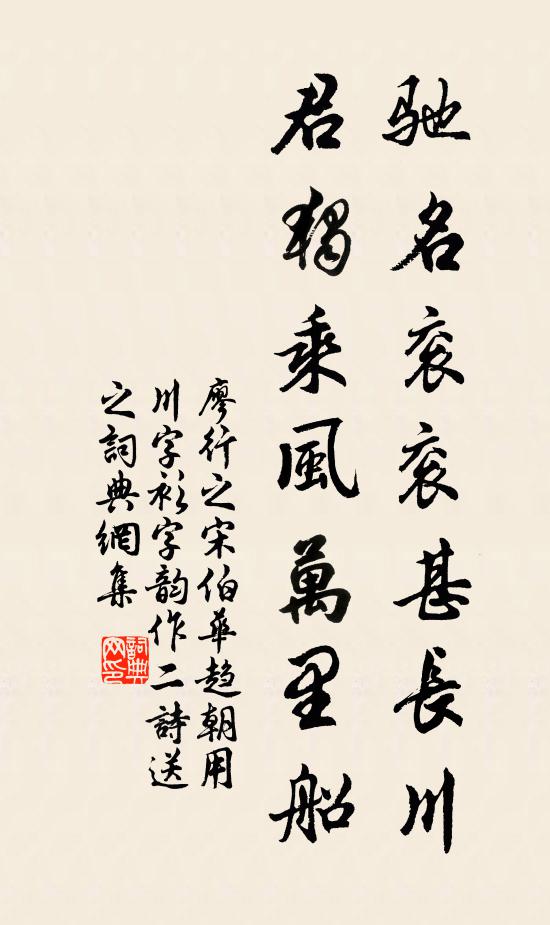 馳名衮衮甚長川
君獨乘風萬里船
廖行之宋伯華趋朝用
川字衫字韵作二詩送
之詞典網集
詞典網印